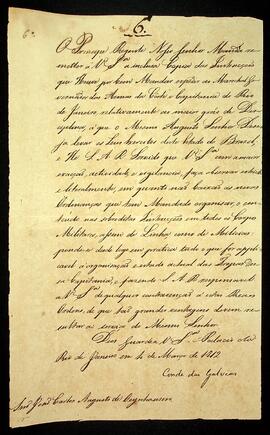 6.
6.
O Principe Regente Nosso Senhor Manda re
metter a V. Sa. a inclusa Copia das Instrucções
que Houve por bem Mandar expedir ao Marechal Go
vernador das Armas da Corte e Capitania do Rio
de Janeiro, relativamente ao maior gráo de Dis
ciplina, a que o Mesmo Augusto Senhor Dese
ja levar os Seus Exercitos deste Estado do Brazil,
e He S. A. R. Servido que V. Sa. com a maior
exacção, actividade e vigilancia, faça observar estricta
e litteralmente, em quanto não baixão as novas
Ordenanças que tem Mandado organisar, o con
teúdo nas sobreditas Instrucções em todos os Corpos
Militares, assim de Linha, como de Milicias
pondo-se desde logo em pratica tudo o que for appli
cavel á organisação e estado actual das Tropas des
sa Capitania, e fazendo S. A. R. responsavel
V. Sa. de qualquer contravenção a estas Reaes
Ordens, de que tão grandes vantagens devem re
sultar a serviço do Mesmo Senhor.
Deos Guarde a V. Sa. Palacio do
Rio de Janeiro em 4 de Março de 1812
Conde das Galveas
Snr. João Carlos Augusto de Oeynhausen